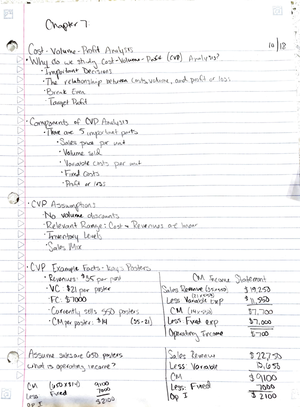 Chapter 7
10/18
Cost-Volume-Profit Analysis
• Why do we study Cost-Volume-Profit (CVP) Analysis?
• Important Decisions
• The relationship between costs, volume, and profit or loss
• Break Even
Target Profit
• Components of CVP Analysis
• There are 5 important parts
• Sales price per unit
• Volume sold
• Variable costs per unit
• Fixed costs
• Profit or loss
• CVP Assumptions
No volume discounts
Relevant Range: Cost & Revenues are linear
Inventory Levels
Sales Mix
• CVP Example Facts - Posters
• Revenues: $35 per post
• VC: $21 per poster
• FC: $7000
• Currently sells 550 posters
• CM per poster: $14 (35-21)
CM Income Statement
Sales Revenue (35×550) $19,250
Less Variable Exp (21×550) $11,550
CM (14×550) $7,700
Less Fixed exp $7,000
Operating Income $700
Assume sales are 650 posters
what is operating income?
CM (650×$14) 9100
Less Fixed 7000
Op I $2100
Sales Revenue $22,750
Less Variable 13,650
CM $9100
Less: Fixed 7000
Op I $2100